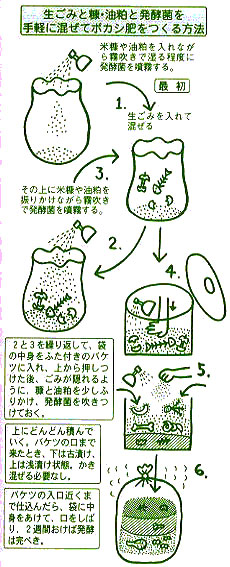 生ごみと糠・油粕と発酵菌を
手軽に混ぜてボカシ肥をつくる方法
米糠や油粕を入れなが
ら霧吹きで湿る程度に
発酵菌を噴霧する。
1.
最初
生ごみを入れて
混ぜる
3.
その上に米糠や油粕を
振りかけながら霧吹き
で発酵菌を噴霧する。
2.
4.
2と3を繰り返して、袋
の中身をふた付きのバケ
ツに入れ、上から押しつ
けた後、ごみが隠れるよ
うに、糠と油粕を少しふ
りかけ、発酵菌を吹きつ
けておく。
5.
上にどんどん積んで
いく。バケツの口まで
来たとき、下は古漬け、
上は浅漬け状態。かき
混ぜる必要なし。
6.
バケツの入口近くま
で仕込んだら、袋に中
身をあけて、口をしば
り、2週間おけば発酵
は完ぺき。